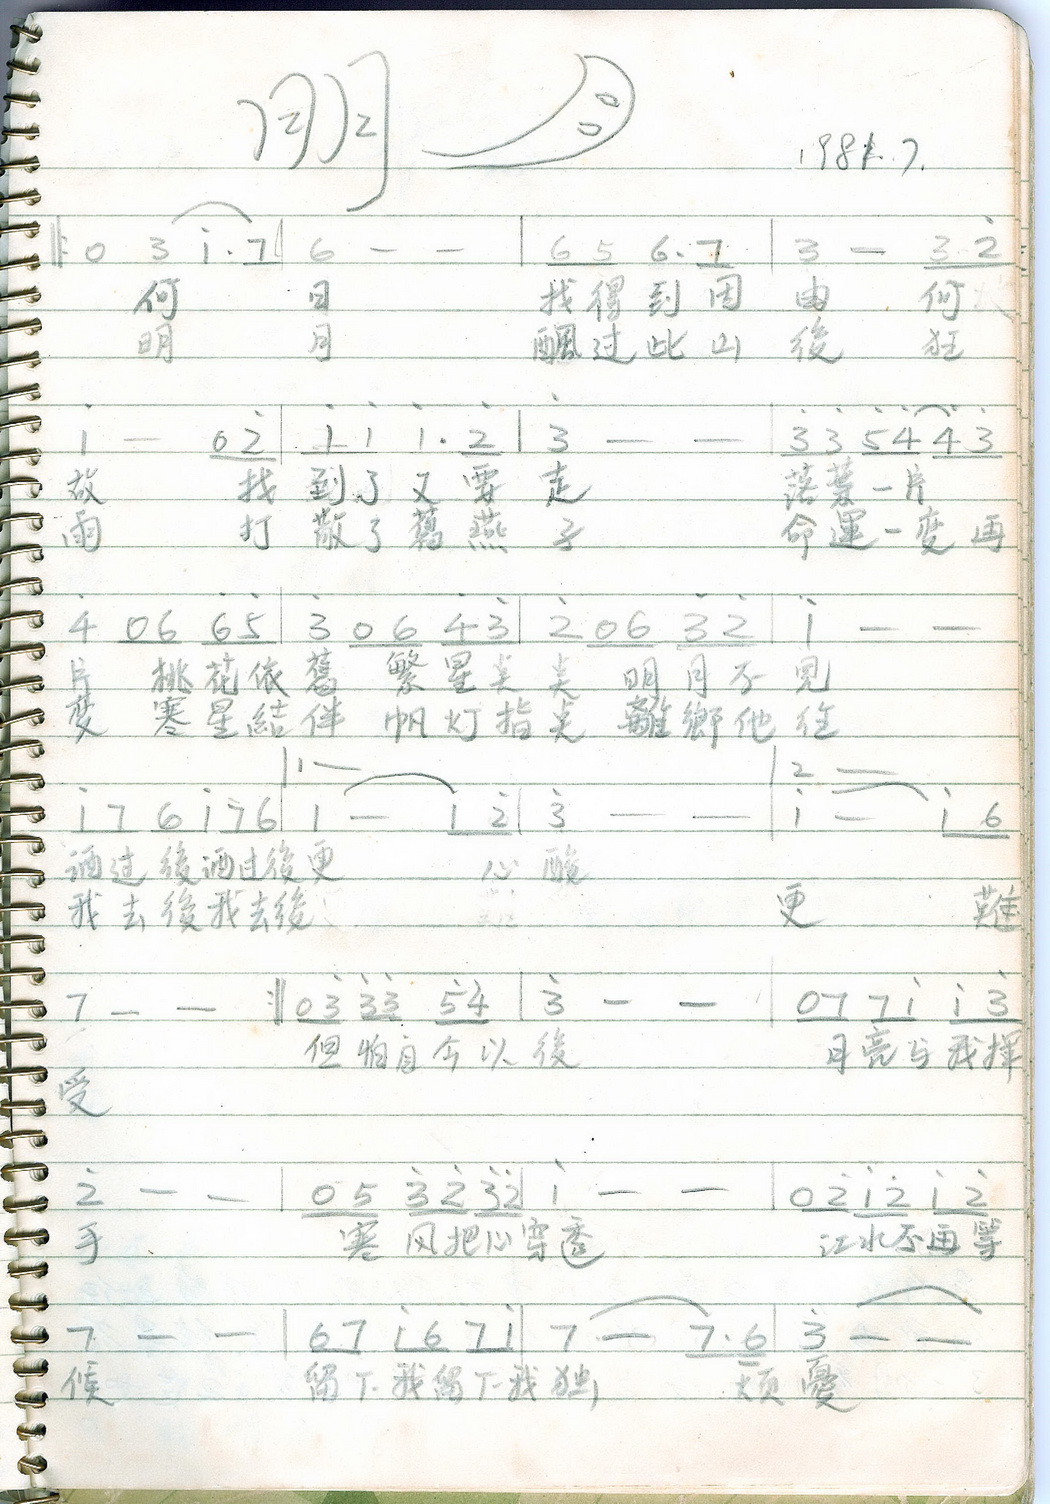 明月
1981.7.
‖: 0 3 i̇·7 | 6 — — | 6 5 6·7 | 3 — 3 2̇
何 日 找得到因 由 何
明 月 飄过此山 後 狂
i̇ — 0 2̇ | i̇ i̇ i̇·2̇ | 3̇ — — | 3̇ 3̇ 5̇ 4̇ 4̇ 3̇
故 找 到了又要 走 落葉一片
雨 打 散了舊燕 子 命運一变再
4̇ 0 6 6 5̇ | 3̇ 0 6 4̇ 3̇ | 2̇ 0 6 3̇ 2̇ | i̇ — —
片 桃花依舊 繁星点点 明月不見
变 寒星結伴 帆灯指点 離鄉他往
1 — 2 —
i̇ 7 6 i̇ 7 6 | i̇ — i̇ 2̇ | 3̇ — — | i̇ — i̇ 6
酒过後酒过後更 心酸
我去後我去後 更 難
7 — — :‖ 0 3̇ 3̇ 3̇ 5̇ 4̇ | 3̇ — — | 0 7 7 i̇ i̇ 3̇
但怕自今以後 月亮与我揮
受
2̇ — — | 0 5 3̇ 2̇ 3̇ 2̇ | i̇ — — | 0 2̇ i̇ 2̇ i̇ 2̇
手 寒风把心穿透 江水不再等
7 — — | 6 7 i̇ 6 7 i̇ | 7 — 7·6 | 3̇ — —
候 留下我留下我独 煩憂